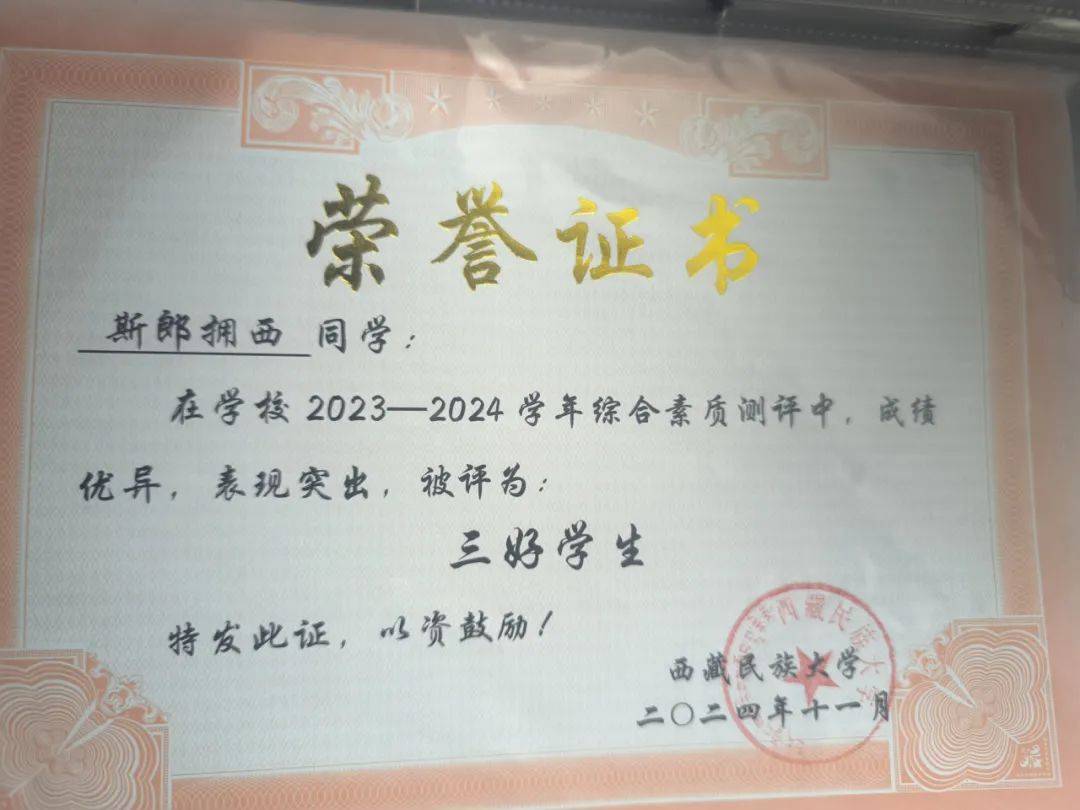 荣誉证书
斯郎拥西 同学：
在学校2023—2024学年综合素质测评中，成绩
优异，表现突出，被评为：
三好学生
特发此证，以资鼓励！
西藏民族大学
西藏民族大学
二〇二四年十一月